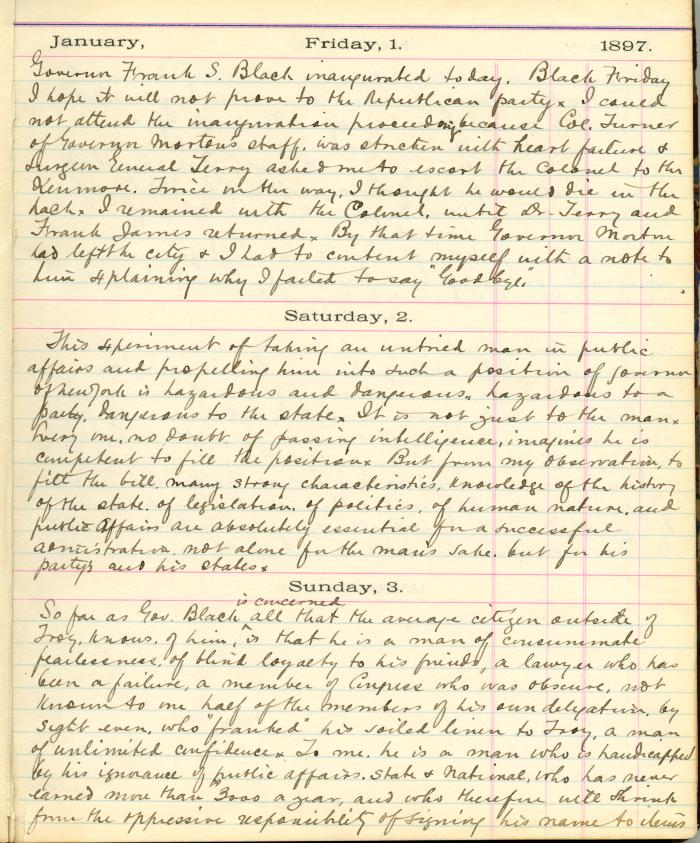 January, Friday, 1. 1897.
Governor Frank S. Black inaugurated today. Black Friday
I hope it will not prove to the Republican party. I could
not attend the inauguration proceedings because Col. Turner
of Governor Morton's staff, was stricken with heart failure &
Surgeon General Terry asked me to escort the Colonel to the
Kenmore. Twice on the way, I thought he would die in the
hack. I remained with the Colonel, until Dr. Terry and
Frank James returned. By that time Governor Morton
had left the city & I had to content myself with a note to
him explaining why I failed to say "Good bye."
Saturday, 2.
This experiment of taking an untried man in public
affairs and propelling him into such a position of governor
of New York is hazardous and dangerous, hazardous to a
party, dangerous to the state. It is not just to the man.
Every one, no doubt of passing intelligence, imagines he is
competent to fill the position. But from my observation, to
fill the bill, many strong characteristics, knowledge of the history
of the state, of legislation, of politics, of human nature, and
public affairs are absolutely essential for a successful
administration, not alone for the man's sake, but for his
party's and his states.
Sunday, 3.
is concerned
So far as Gov. Black ^ all that the average citizen outside of
Troy, knows, of him, is that he is a man of consummate
fearlessness, of blind loyalty to his friends, a lawyer who has
been a failure, a member of Congress who was obscure, not
known to one half of the members of his own delegation, by
sight even, who "franked" his soiled linen to Troy, a man
of unlimited confidence. To me, he is a man who is handicapped
by his ignorance of public affairs, State & National, who has never
earned more than 3000 a year, and who therefore will shrink
from the oppressive responsibility of signing his name to items